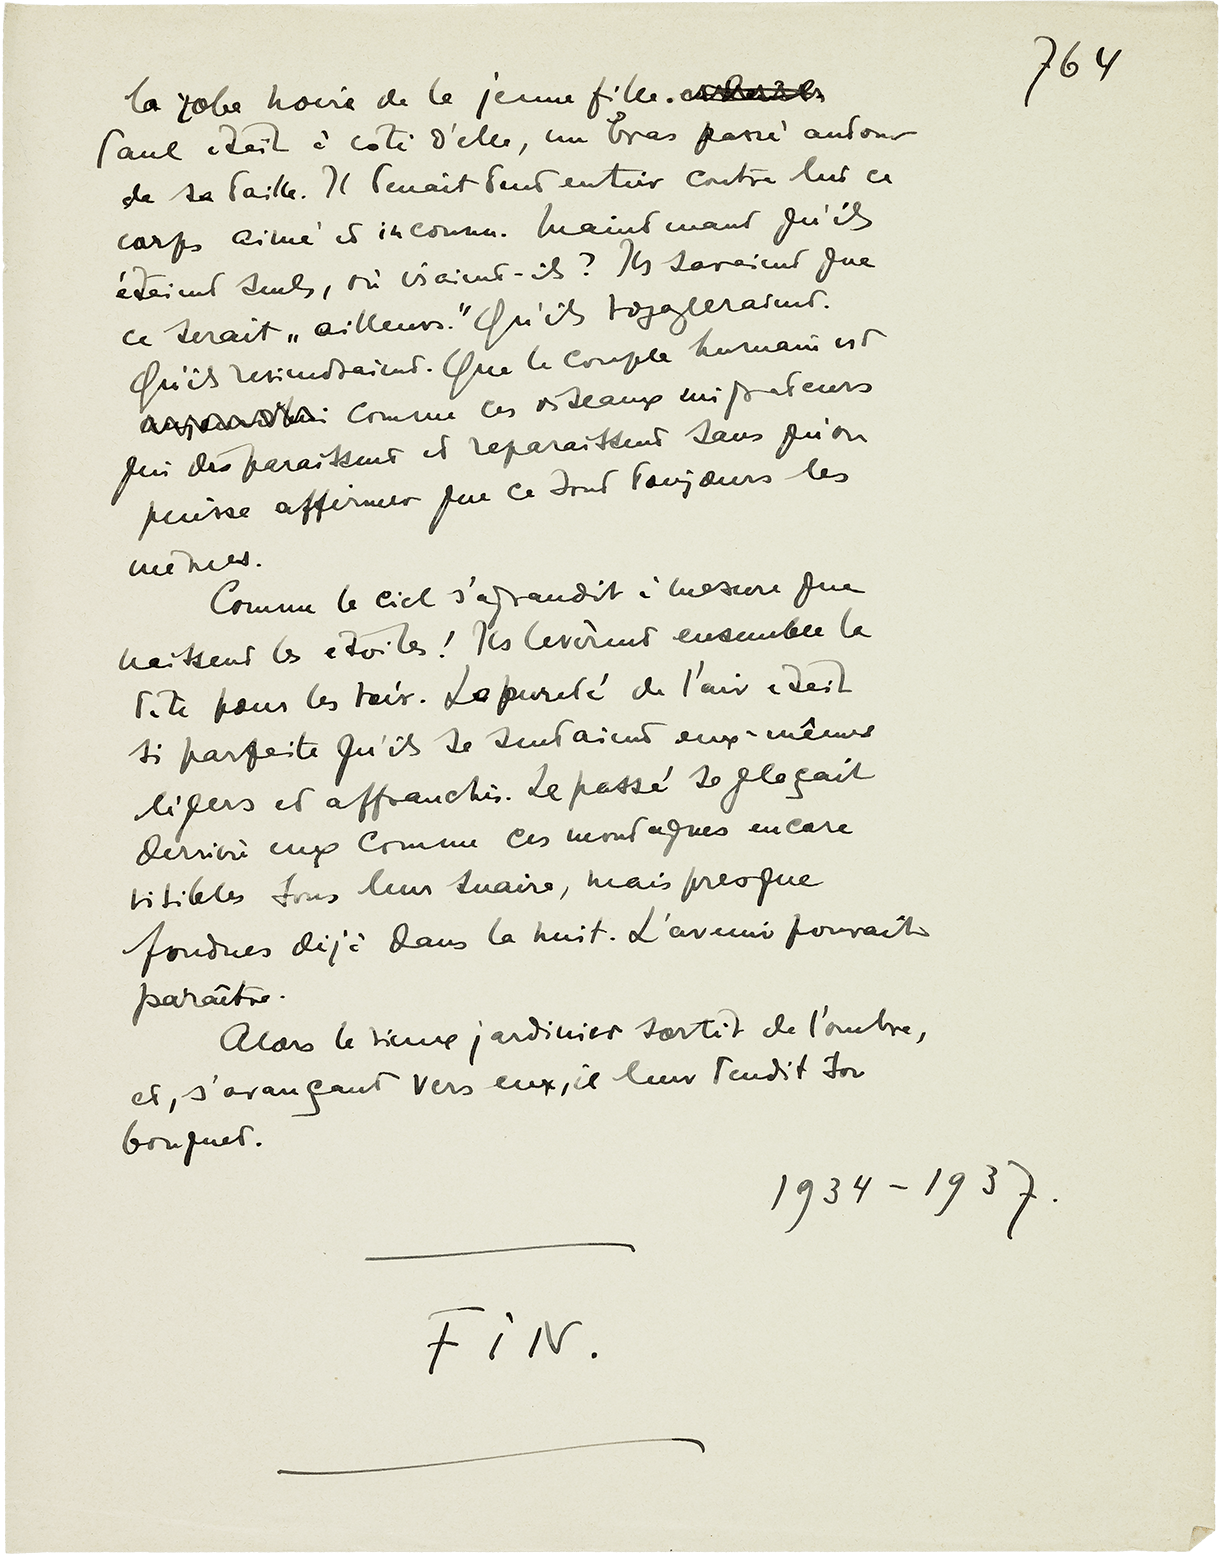 764
la robe noire de la jeune fille.
Paul était à côté d'elle, un bras passé autour
de sa taille. Il tenait tout entier contre lui ce
corps aimé et inconnu. Maintenant qu'ils
étaient seuls, où iraient-ils? Ils savaient que
ce serait „ailleurs." Qu'ils voyageraient.
Qu'ils reviendraient. Que le couple humain est
comme ces oiseaux migrateurs
qui disparaissent et reparaissent sans qu'on
puisse affirmer que ce sont toujours les
mêmes.
Comme le ciel s'agrandit à mesure que
naissent les étoiles! Ils levèrent ensemble la
tête pour les voir. La pureté de l'air était
si parfaite qu'ils se sentaient eux-mêmes
légers et affranchis. Le passé se plaçait
derrière eux comme ces montagnes encore
visibles sous leur suaire, mais presque
fondues déjà dans la nuit. L'avenir pouvait
paraître.
Alors le vieux jardinier sortit de l'ombre,
et, s'avançant vers eux, il leur tendit son
bouquet.
1934-1937.
FiN.